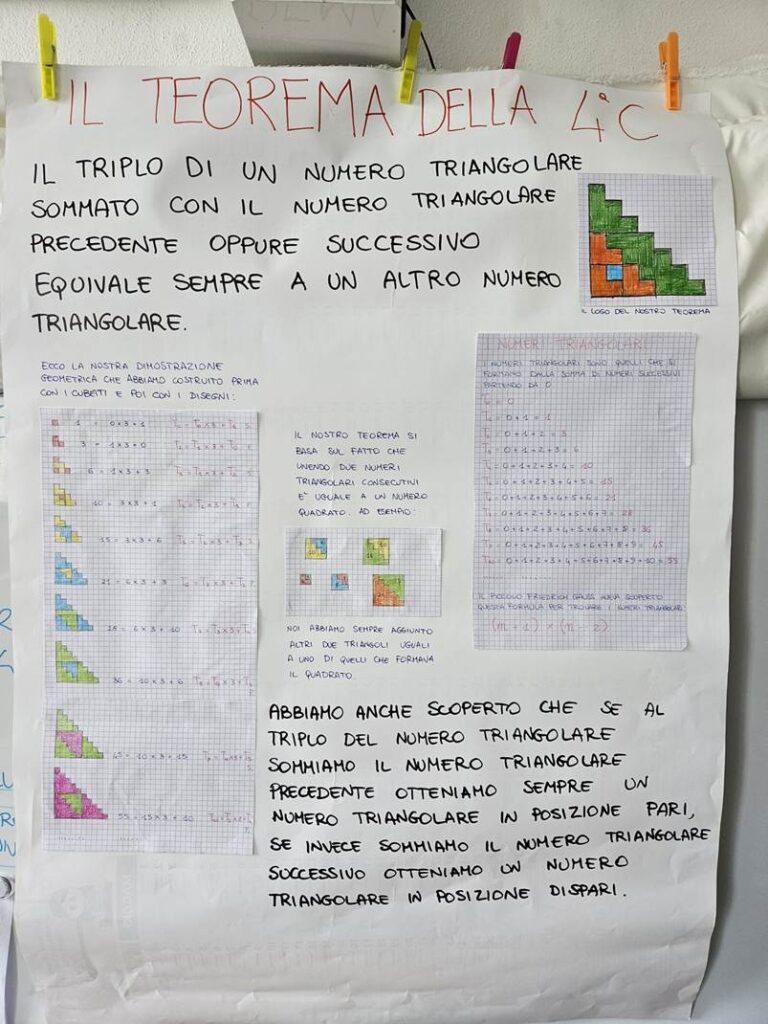 IL TEOREMA DELLA 4ªC
IL TRIPLO DI UN NUMERO TRIANGOLARE
SOMMATO CON IL NUMERO TRIANGOLARE
PRECEDENTE OPPURE SUCCESSIVO
EQUIVALE SEMPRE A UN ALTRO NUMERO
TRIANGOLARE.
IL LOGO DEL NOSTRO TEOREMA
ECCO LA NOSTRA DIMOSTRAZIONE
GEOMETRICA CHE ABBIAMO COSTRUITO PRIMA
CON I CUBETTI E POI CON I DISEGNI:
1 = 0×3+1
3 = 1×3+0
6 = 1×3+3
10 = 3×3+1
15 = 3×3+6
21 = 6×3+3
28 = 6×3+10
36 = 10×3+6
45 = 10×3+15
55 = 15×3+10
IL NOSTRO TEOREMA SI
BASA SUL FATTO CHE
UNENDO DUE NUMERI
TRIANGOLARI CONSECUTIVI
E' UGUALE A UN NUMERO
QUADRATO. AD ESEMPIO:
NOI ABBIAMO SEMPRE AGGIUNTO
ALTRI DUE TRIANGOLI UGUALI
A UNO DI QUELLI CHE FORMAVA
IL QUADRATO.
NUMERI TRIANGOLARI
I NUMERI TRIANGOLARI SONO QUELLI CHE SI
FORMANO DALLA SOMMA DI NUMERI SUCCESSIVI
PARTENDO DA 0
= 0
= 0+1 = 1
= 0+1+2 = 3
= 0+1+2+3 = 6
= 0+1+2+3+4 = 10
= 0+1+2+3+4+5 = 15
= 0+1+2+3+4+5+6 = 21
= 0+1+2+3+4+5+6+7 = 28
= 0+1+2+3+4+5+6+7+8 = 36
= 0+1+2+3+4+5+6+7+8+9 = 45
= 0+1+2+3+4+5+6+7+8+9+10 = 55
IL PICCOLO FRIEDRICH GAUSS AVEVA SCOPERTO
QUESTA FORMULA PER TROVARE I NUMERI TRIANGOLARI:
ABBIAMO ANCHE SCOPERTO CHE SE AL
TRIPLO DEL NUMERO TRIANGOLARE
SOMMIAMO IL NUMERO TRIANGOLARE
PRECEDENTE OTTENIAMO SEMPRE UN
NUMERO TRIANGOLARE IN POSIZIONE PARI,
SE INVECE SOMMIAMO IL NUMERO TRIANGOLARE
SUCCESSIVO OTTENIAMO UN NUMERO
TRIANGOLARE IN POSIZIONE DISPARI.